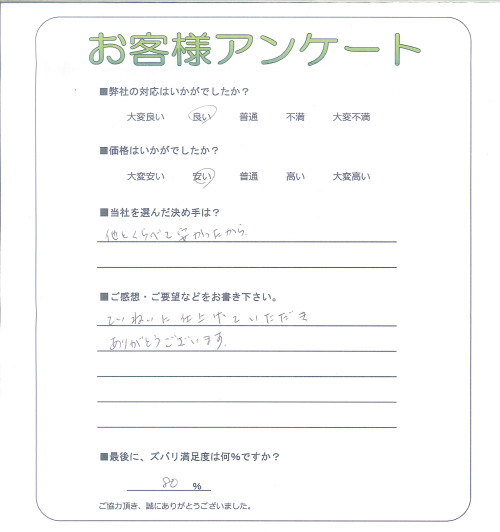 お客様アンケート
■弊社の対応はいかがでしたか？
大変良い 良い 普通 不満 大変不満
■価格はいかがでしたか？
大変安い 安い 普通 高い 大変高い
■当社を選んだ決め手は？
他とくらべて安かったから
■ご感想・ご要望などをお書き下さい。
ていねいに仕上げていただき
ありがとうございます。
■最後に、ズバリ満足度は何%ですか？
80 %
ご協力頂き、誠にありがとうございました。